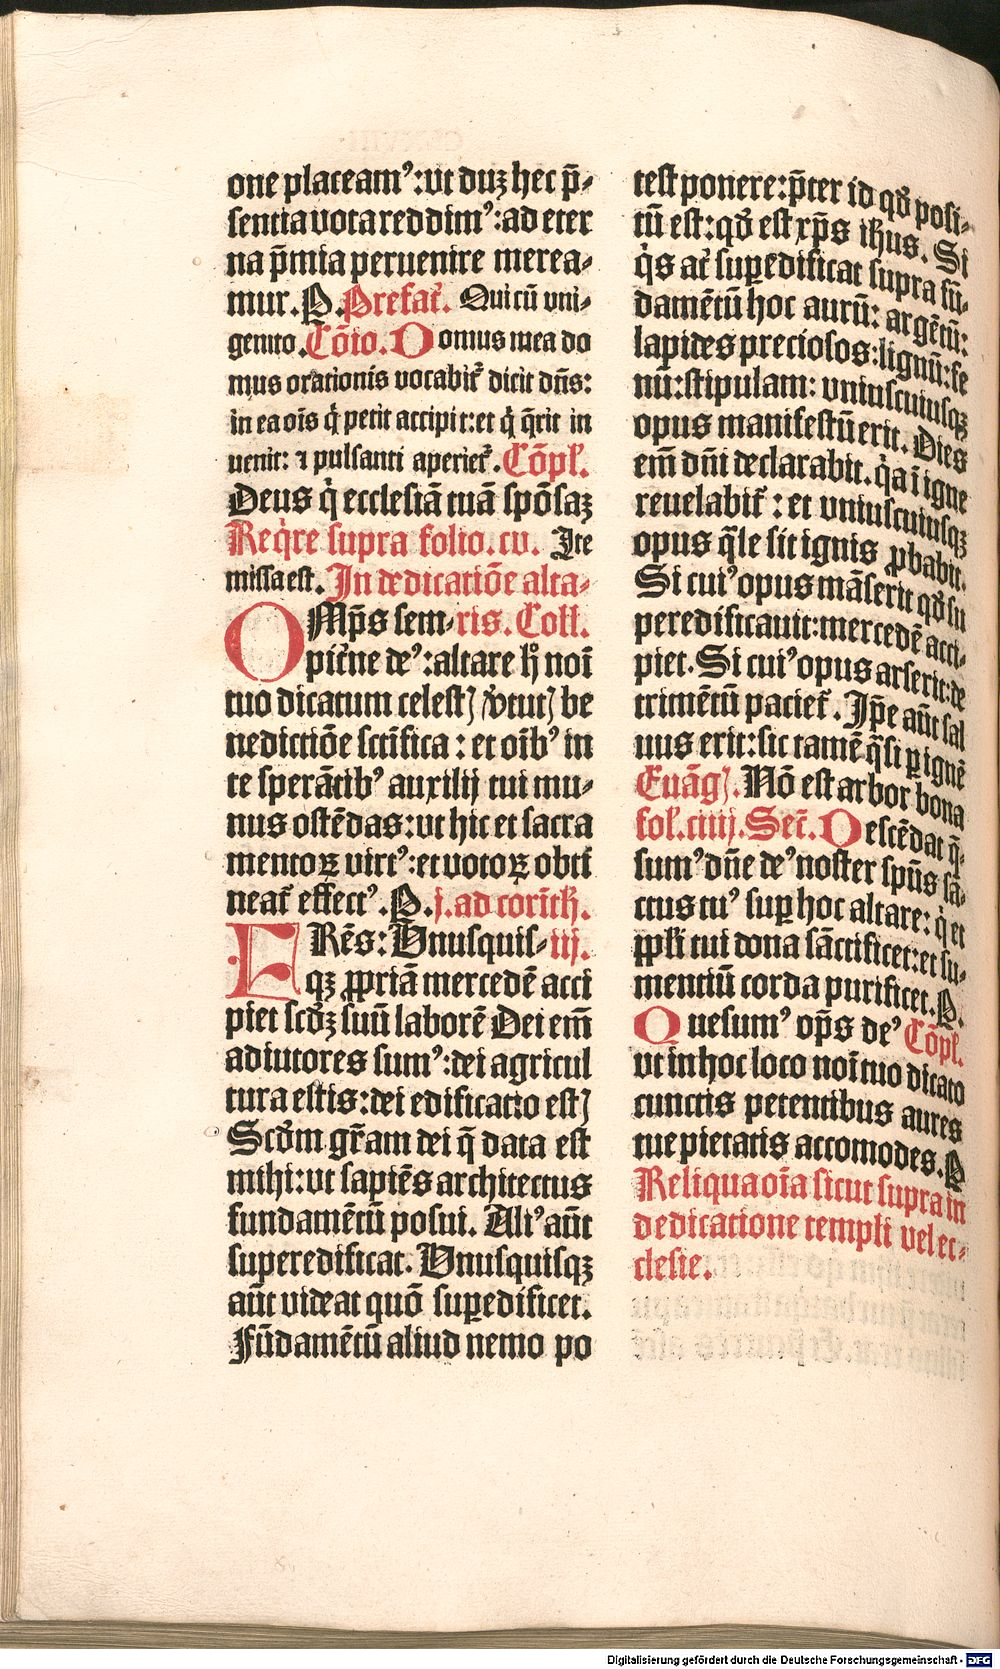 one placeam⁹:ut duꝫ hec p̄⸗
sentia vota reddim⁹:ad eter
na p̄mia peruenire merea⸗
mur.P.Prefat̄. Qui cū vni⸗
genito.Cōio. Domus mea do
mus orationis vocabit̄ dicit dn̄s:
in ea oīs q̇ petit accipit:et q̇ q̄rit in
uenit: ⁊ pulsanti aperiet̄. Cōpl̄.
Deus q̇ ecclesiā tuā spōsaꝫ
Req̇re supra folio.cv. Ite
missa est. In dedicatiōe alta⸗
OMp̄s sem⸗ris. Coll.
pit̄ne de⁹:altare h̄ noī
tuo dicatum celestꝭ v̄tutꝭ be
nedictiōe sctīfica: et oīb⁹ in
te sperātib⁹ auxilij tui mu⸗
nus ostēdas:ut hic et sacra
mentoꝝ virt⁹:et votoꝝ obti
neat̄ effect⁹.P.j.ad corīth.
FRēs: Vnusquis⸗iij.
qꝫ ꝓpriā mercedē acci
piet scd̄ꝫ suū laborē Dei em̄
adiutores sum⁹:dei agricul
tura estis:dei edificatio estꝭ
Scd̄m gr̄am dei q̄ data est
mihi:ut sapiēs architectus
fundamētū posui. Ali⁹ aūt
superedificat. Vnusquisqꝫ
aūt videat quō suꝑedificet.
Fūdamētū aliud nemo po
test ponere:p̄ter id qd̄ posi⸗
tū est:qd̄ est xp̄s ih̄us. Si
q̇s at̄ suꝑedificat supra fū⸗
damētū hoc aurū: argētū:
lapides preciosos:lignū:fe
nū:stipulam: vniuscuiusqꝫ
opus manifestū erit. Dies
em̄ dn̄i declarabit. q̇a ī igne
reuelabit̄ : et vniuscuiusqꝫ
opus q̄le sit ignis ꝓbabit.
Si cui⁹ opus māserit qd̄ su
peredificauit:mercedē acci⸗
piet. Si cui⁹ opus arserit:de
trimētū paciet̄. Ip̄e aūt sal
uus erit:sic tamē q̄si ꝑ ignē
Euāgꝭ. Nō est arbor bona
fol̄.ciiij. Sec̄. Descēdat q̄⸗
sum⁹ dn̄e de⁹ noster spūs sā⸗
ctus tu⁹ suꝑ hoc altare: q̇ et
ppl̄i tui dona sāctificet:et su⸗
mentiū corda purificet.P.
Quesum⁹ op̄s de⁹ Cōpl̄.
ut in hoc loco noī tuo dicato
cunctis petentibus aures
tue pietatis accomodes.P
Reliqua oīa sicut supra in
dedicatione templi vel ec⸗
clesie.
Digitalisierung gefördert durch die Deutsche Forschungsgemeinschaft - DFG